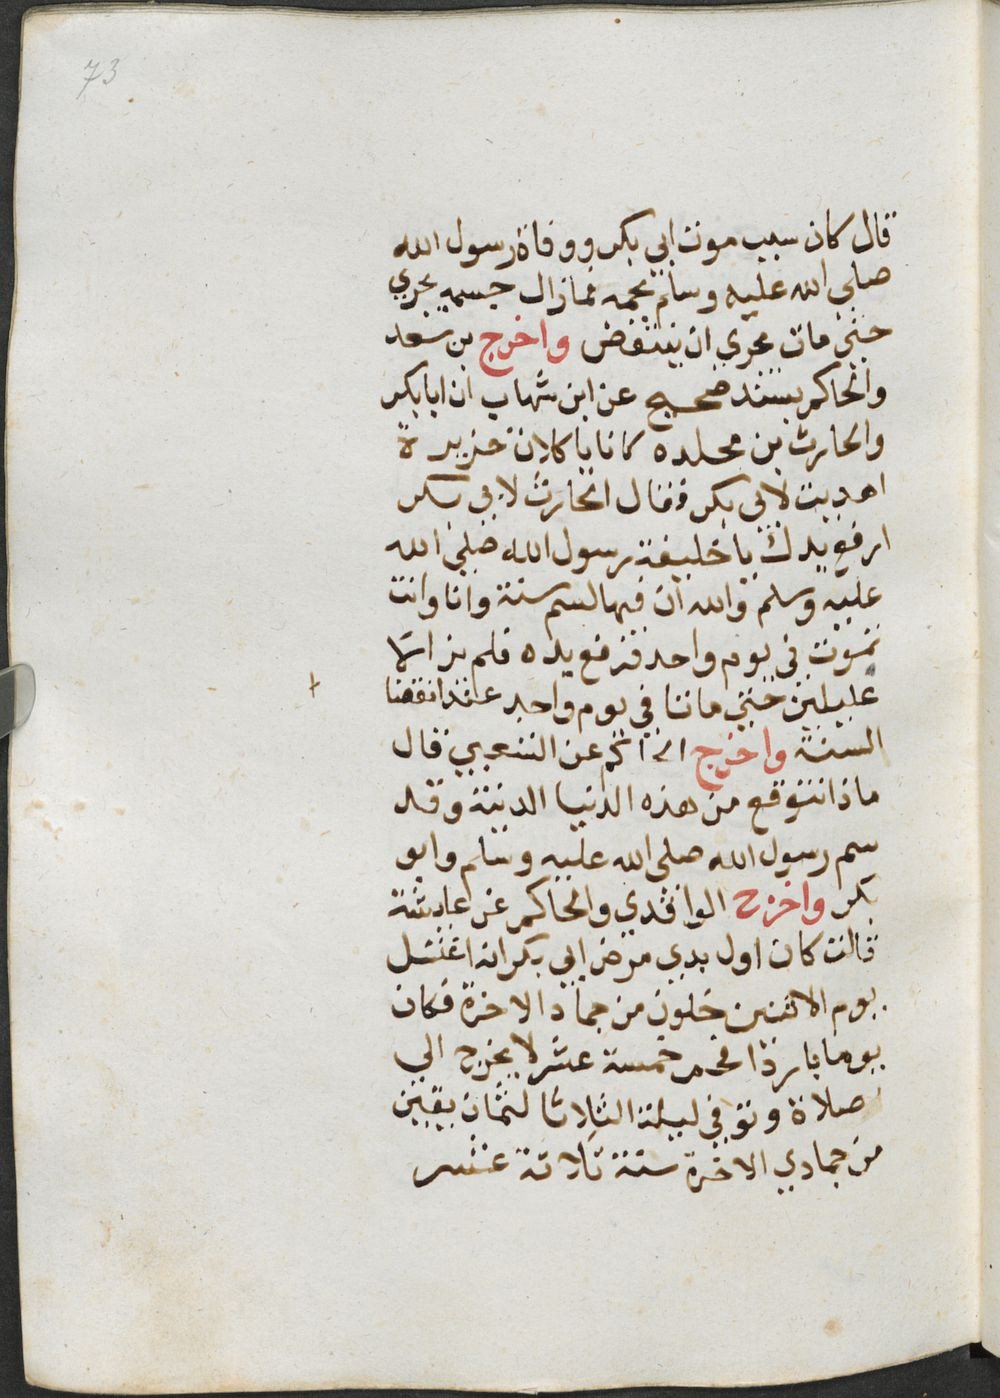 73
قال كان سبب موت ابي بكر ووفاة رسول الله
صلي الله عليه وسلم بحمه فمازال جسمه يجري
حتي مات يجري ان ينتقض واخرج بن سعد
والحاكم بسند صحيح عن ابن شهاب ان ابا بكر
والحارث بن محلده كانا ياكلان خزيرة
اهديت لابي بكر فقال الحارث لابي بكر
ارفع يدك يا خليفة رسول الله صلي الله
عليه وسلم والله ان فيها لسم سنة وانا وانت
نموت في يوم واحد فرفع يده فلم يزالا
عليلين حتي ماتا في يوم واحد عند انقضا
السنة واخرج الحاكم عن الشعبي قال
ماذا نتوقع من هذه الدنيا الدنية وقد
سم رسول الله صلي الله عليه وسلم وابو
بكر واخرج الواقدي والحاكم عن عايشة
قالت كان اول بدي مرض ابي بكر انه اغتسل
يوم الاثنين خلون من جماد الاخرة فكان
يوما باردا فحم خمسة عشر لا يخرج الي
صلاة وتوفي ليلة الثلاثا لثمان بقين
من جمادي الاخرة سنة ثلاثة عشر